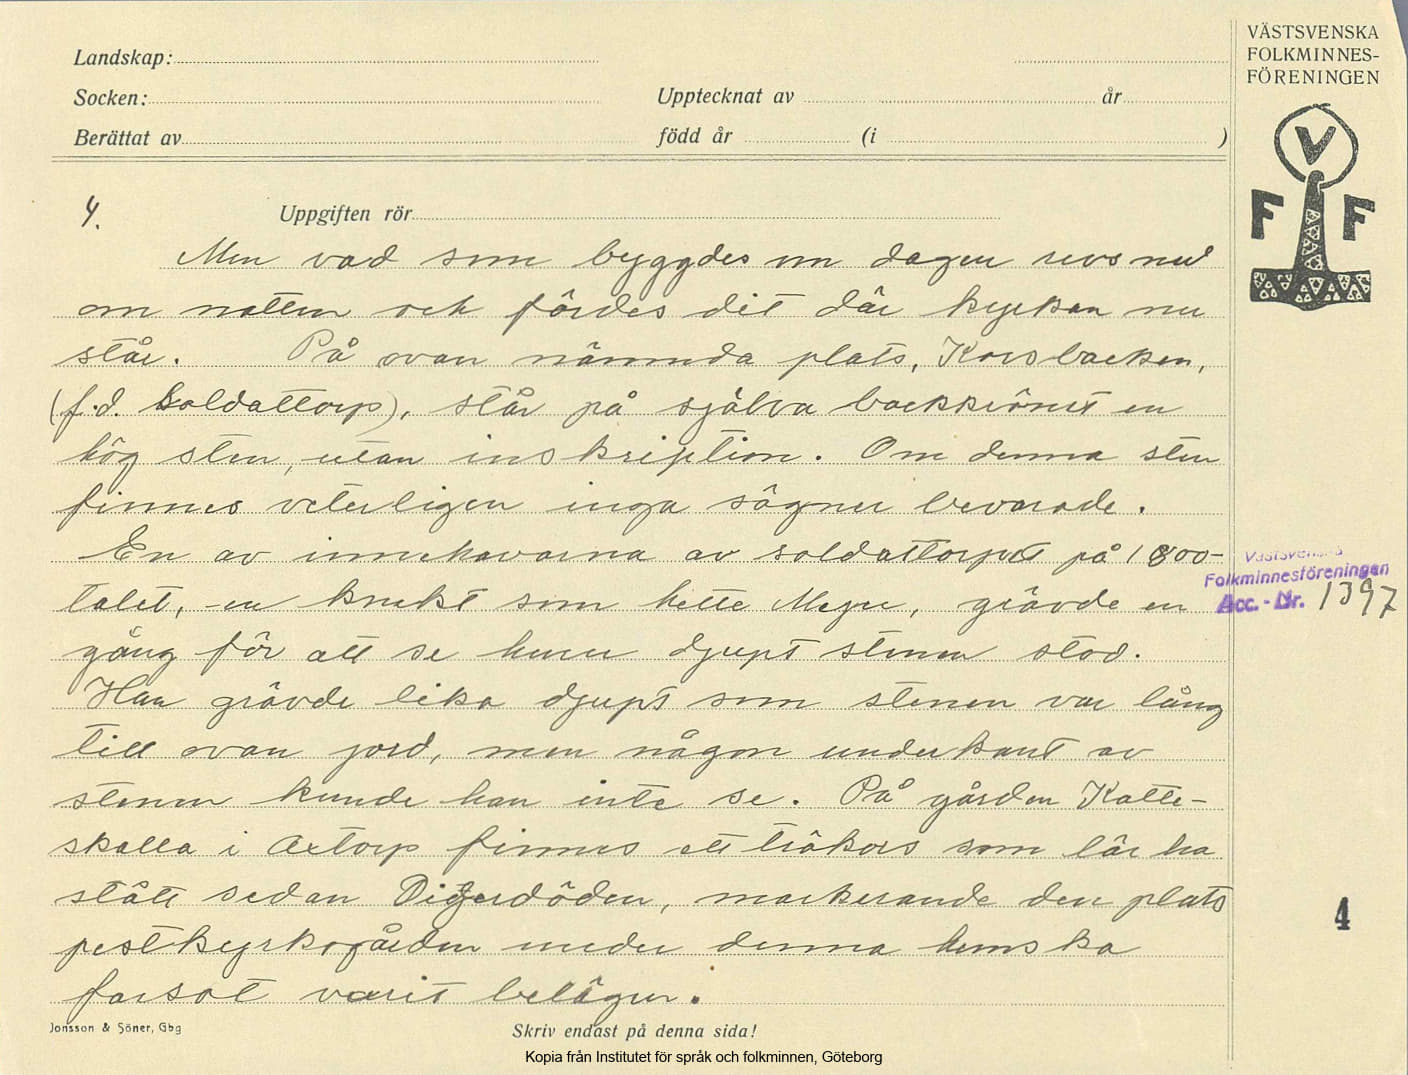 VÄSTSVENSKA
FOLKMINNES-
FÖRENINGEN
V
F F
Landskap:
Socken: Upptecknat av år
Berättat av född år (i )
4. Uppgiften rör
Men vad som byggdes om dagen revs ned
om natten och fördes dit där kyrkan nu
står. På ovan nämnda plats, Korsbacken,
(f.d. Soldattorp), står på själva backkrönet en
hög sten, utan inskription. Om denna sten
finnes veterligen inga sägner bevarade.
En av innehavarna av soldattorpet på 1800-
talet, en knekt som hette Meyer, grävde en
gång för att se huru djupt stenen stod.
Han grävde lika djupt som stenen var lång
till ovan jord, men någon underkant av
stenen kunde han inte se. På gården Katte-
skalla i Axtorp finnes ett träkors som lär ha
stått sedan Digerdöden, markerande den plats
pestkyrkogården under denna hemska
farsot varit belägen.
Västsvenska
Folkminnesföreningen
Acc. - Nr. 1397
4
Jonsson & Söner, Gbg
Skriv endast på denna sida!
Kopia från Institutet för språk och folkminnen, Göteborg